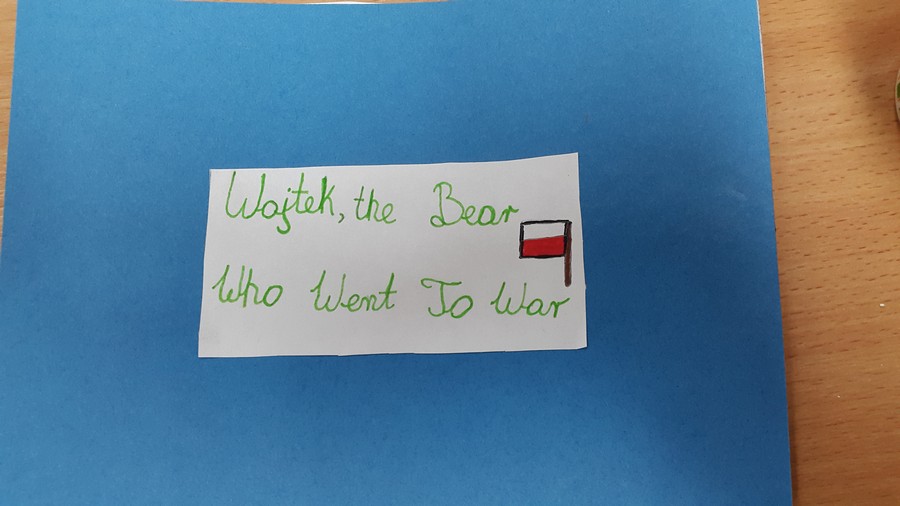 Wojtek, the Bear
Who Went To War